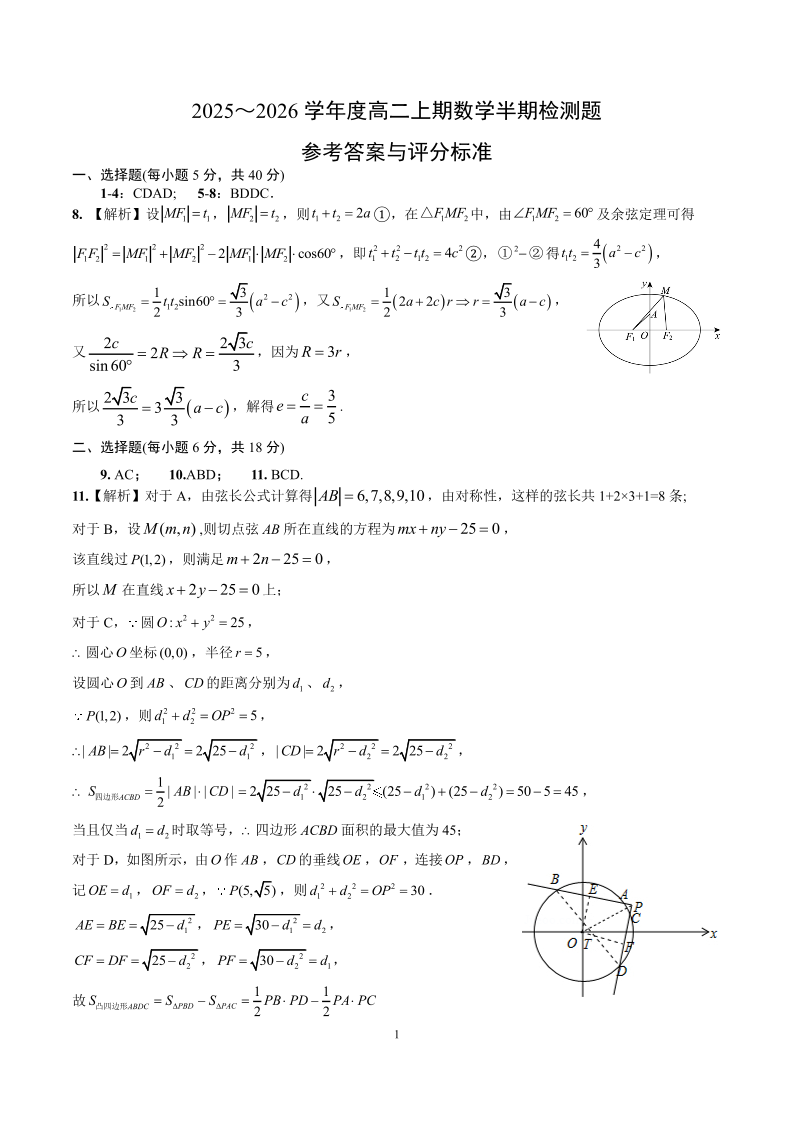 2025～2026 学年度高二上期数学半期检测题
参考答案与评分标准
一、选择题(每小题 5 分，共 40 分)
1-4：CDAD; 5-8：BDDC．
8. 【解析】设|MF₁|=t₁，|MF₂|=t₂，则t₁+t₂=2a①，在△F₁MF₂中，由∠F₁MF₂=60°及余弦定理可得
|F₁F₂|²=|MF₁|²+|MF₂|²-2|MF₁|·|MF₂|·cos60°，即t₁²+t₂²-t₁t₂=4c²②，①²-②得t₁t₂=4/3(a²-c²)，
所以S△F₁MF₂=1/2 t₁t₂sin60°=√3/3(a²-c²)，又S△F₁MF₂=1/2(2a+2c)r⇒r=√3/3(a-c)，
又 2c/sin60°=2R⇒R=2√3c/3，因为R=3r，
所以 2√3c/3=3 √3/3(a-c)，解得e=c/a=3/5．
y M A F₁ O F₂ x
二、选择题(每小题 6 分，共 18 分)
9. AC； 10.ABD； 11. BCD.
11.【解析】对于 A，由弦长公式计算得|AB|=6,7,8,9,10，由对称性，这样的弦长共 1+2×3+1=8 条;
对于 B，设M(m,n),则切点弦 AB 所在直线的方程为mx+ny-25=0，
该直线过P(1,2)，则满足m+2n-25=0，
所以M 在直线x+2y-25=0上；
对于 C，∵圆O:x²+y²=25，
∴圆心O坐标(0,0)，半径r=5，
设圆心O到 AB 、CD的距离分别为d₁、d₂，
∵P(1,2)，则d₁²+d₂²=OP²=5，
∴|AB|=2√(r²-d₁²)=2√(25-d₁²)，|CD|=2√(r²-d₂²)=2√(25-d₂²)，
∴ S四边形ACBD=1/2|AB|·|CD|=2√(25-d₁²)·√(25-d₂²)≤(25-d₁²)+(25-d₂²)=50-5=45，
当且仅当d₁=d₂时取等号，∴四边形 ACBD 面积的最大值为 45；
对于 D，如图所示，由O作 AB，CD的垂线OE，OF，连接OP，BD，
记OE=d₁，OF=d₂，∵P(5,√5)，则d₁²+d₂²=OP²=30．
AE=BE=√(25-d₁²)，PE=√(30-d₁²)=d₂，
CF=DF=√(25-d₂²)，PF=√(30-d₂²)=d₁，
故S凸四边形ABDC=S△PBD-S△PAC=1/2PB·PD-1/2PA·PC
y B E A P C O T F D x
1